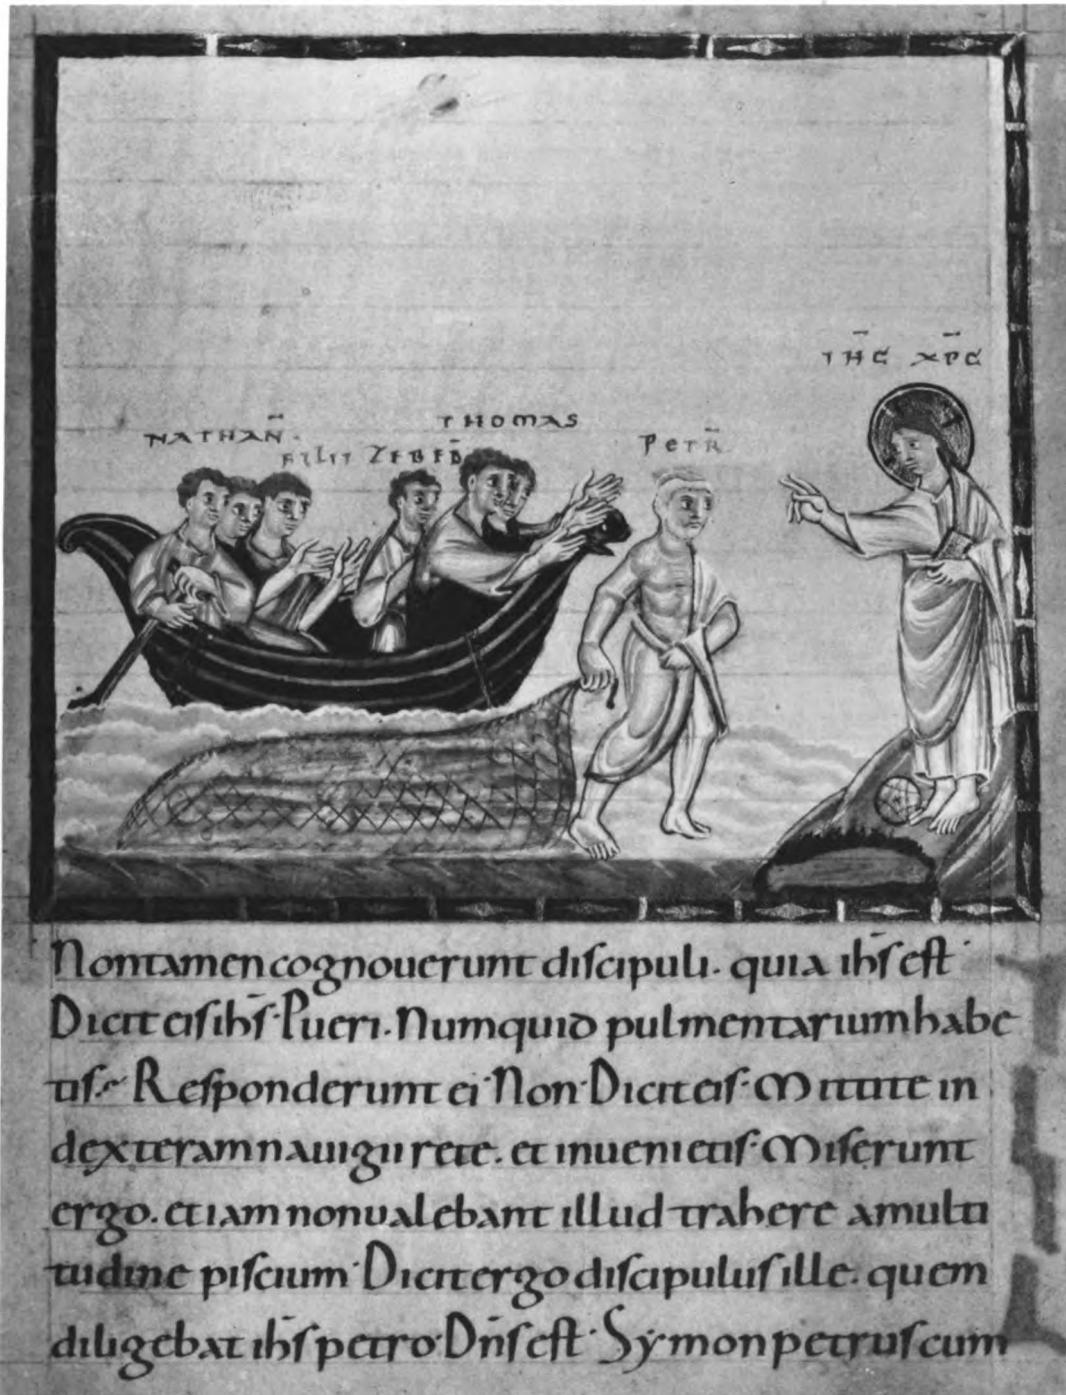 IHC XPC
THOMAS
NATHAN̄.
FILII ZEBED̄
PETR̄
Non tamen cognouerunt discipuli. quia ih̄s est.
Dicit eis ih̄s. Pueri. Numquid pulmentarium habe
tis. Responderunt ei. Non. Dicit eis. Mittite in
dexteram nauigii rete. et inuenietis. Miserunt
ergo. et iam non ualebant illud trahere a multi
tudine piscium. Dicit ergo discipulus ille. quem
diligebat ih̄s petro. Dn̄s est. Symon petrus cum